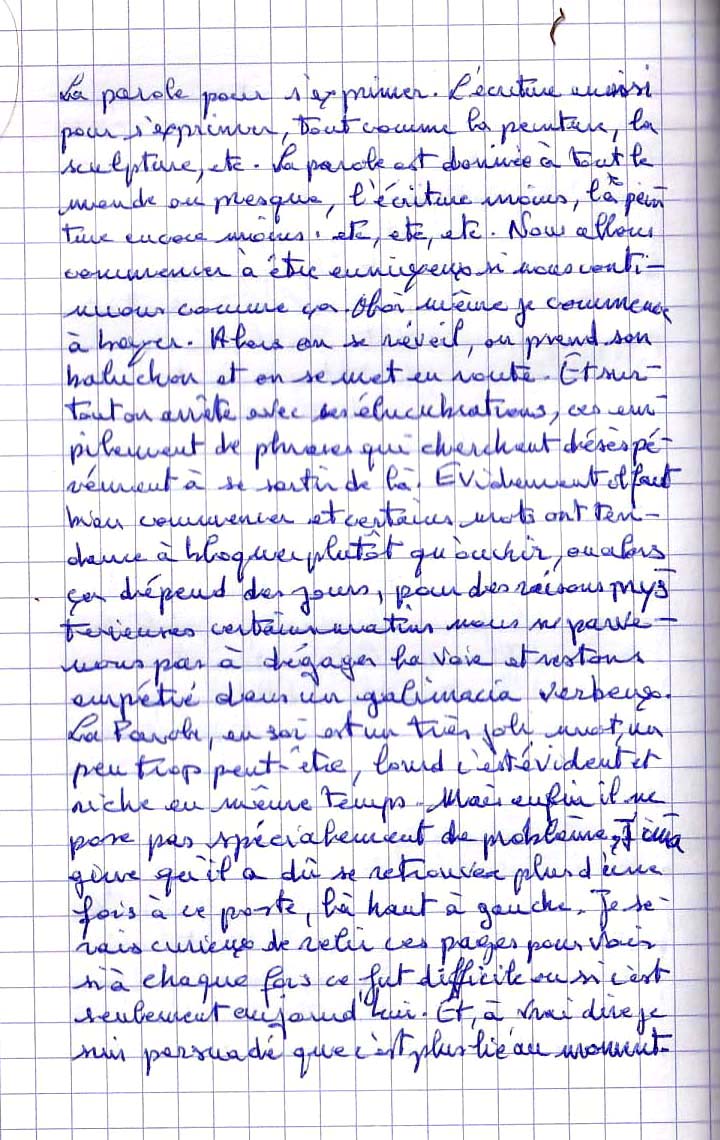 La parole pour s'exprimer. L'écriture aussi
pour s'exprimer, tout comme la peinture, la
sculpture, etc. La parole est donnée à tout le
monde ou presque, l'écriture moins, la pein
ture encore moins. etc, etc, etc. Nous allons
commencer à être ennuyeux si nous conti-
nuons comme ça. Moi même je commence
à bayer. Alors on se réveil, on prend son
baluchon et on se met en route. Et sur-
tout on arrête avec ses élucubrations, ces em-
pilement de phrases qui cherchent désèspé-
rément à se sortir de là. Evidement il faut
bien commencer et certains mots ont ten-
dance à bloquer plutôt qu'ouvrir, ou alors
ça dépend des jours, pour des raisons mys
terieuses certains matins nous ne parve-
nons pas à dégager la voie et restons
empétré dans un galimacia verbeux.
La Parole, en soi est un très joli mot, un
peu trop peut-être, lourd c'est évident et
riche en même temps. Mais enfin il ne
pose pas spécialement de problème, J'ima
gine qu'il a dû se retrouver plus d'une
fois à ce poste, là haut à gauche. Je se-
rais curieux de relir ces pages pour voir
si à chaque fois ce fut difficile ou si c'est
seulement aujourd'hui. Et, à vrai dire je
suis persuadé que c'est plus lié au moment